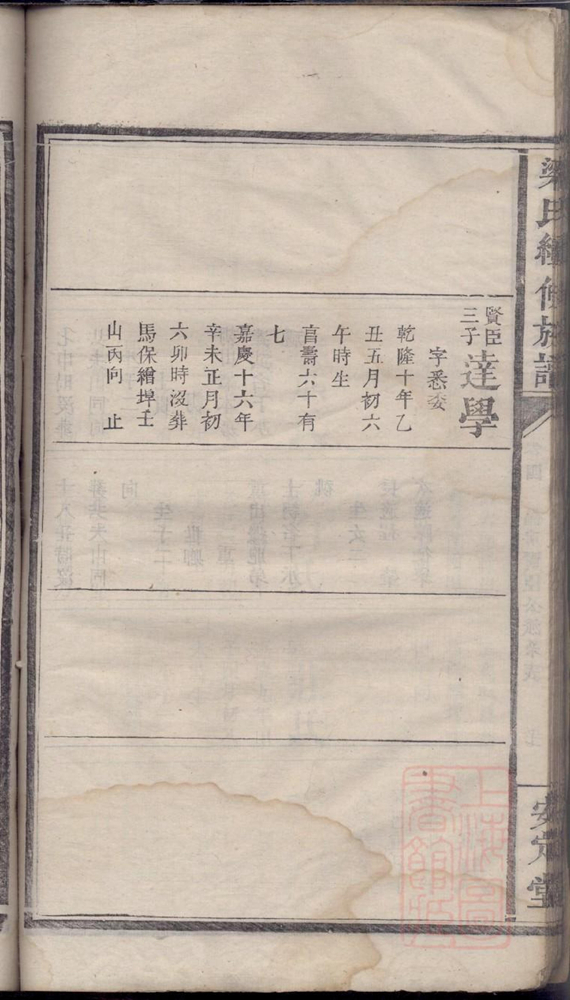 梁氏續修族譜
安定堂
賢臣
三子
達學
字悉委
乾隆十年乙
丑五月初六
午時生
享壽六十有
七
嘉慶十六年
辛未正月初
六卯時沒葬
馬保繒埠壬
山丙向 止
上海圖書館藏